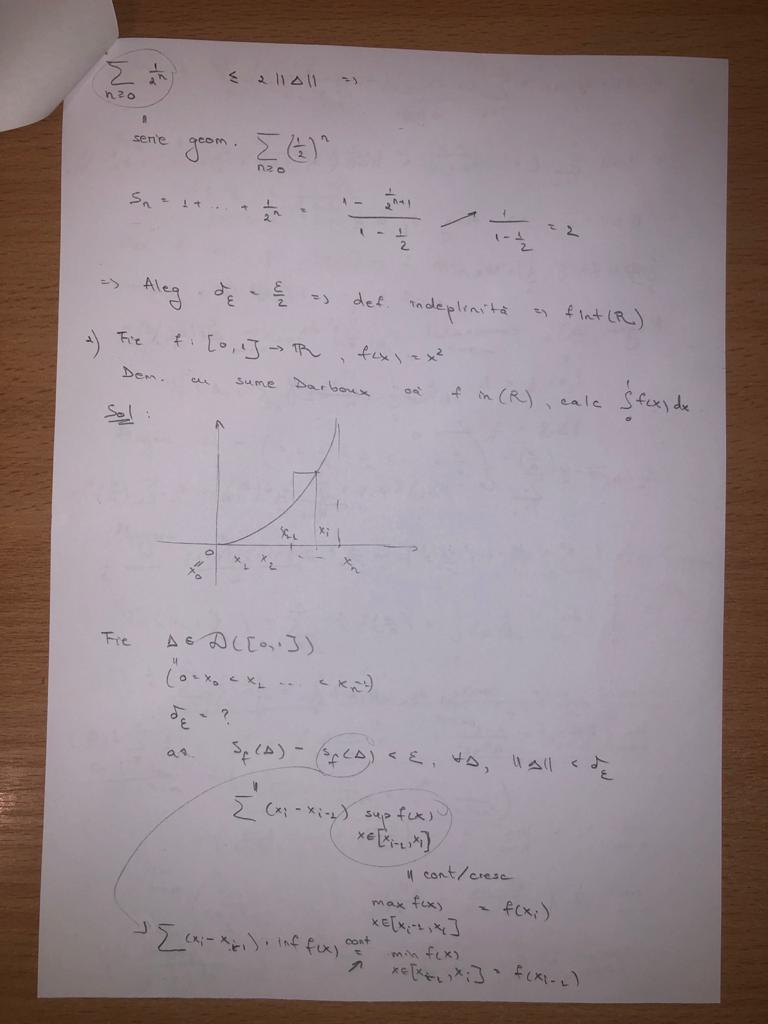 ∑_{n≥0} 1/2^n ≤ 2 ||Δ|| =>
"
serie geom. ∑_{n≥0} (1/2)^n
S_n = 1 + ... + 1/2^n = (1 - 1/2^{n+1}) / (1 - 1/2) ↗ 1/(1 - 1/2) = 2
=> Aleg δ_ε = ε/2 => def. indeplinită => f int (R)
2) Fie f: [0,1] → ℝ, f(x) = x²
Dem. cu sume Darboux că f in (R), calc ∫_0^1 f(x) dx
Sol:
x_{i-1} x_i
0 x_1 x_2 - - x_n
"
x_0
Fie Δ ∈ D([0,1])
"
(0 = x_0 < x_1 .... < x_n = 1)
δ_ε = ?
aî. S_f(Δ) - s_f(Δ) < ε, ∀Δ, ||Δ|| < δ_ε
"
∑ (x_i - x_{i-1}) sup f(x)
x∈[x_{i-1}, x_i]
" cont/cresc
max f(x) = f(x_i)
x∈[x_{i-1}, x_i]
∑ (x_i - x_{i-1}) · inf f(x) cont = min f(x)
x∈[x_{i-1}, x_i] = f(x_{i-1})